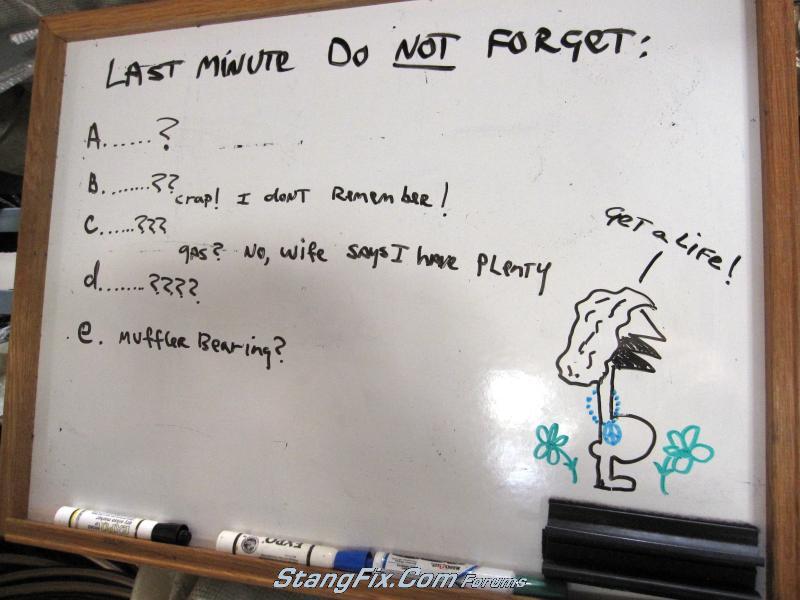 LAST MINUTE DO NOT FORGET:
A......?
B........??
crap! I dONT Remember!
C......???
gas? No, wife says I have PLENTY
d........????
e. Muffler Bearing?
Get a Life!
EXPO
StangFix.Com Forums